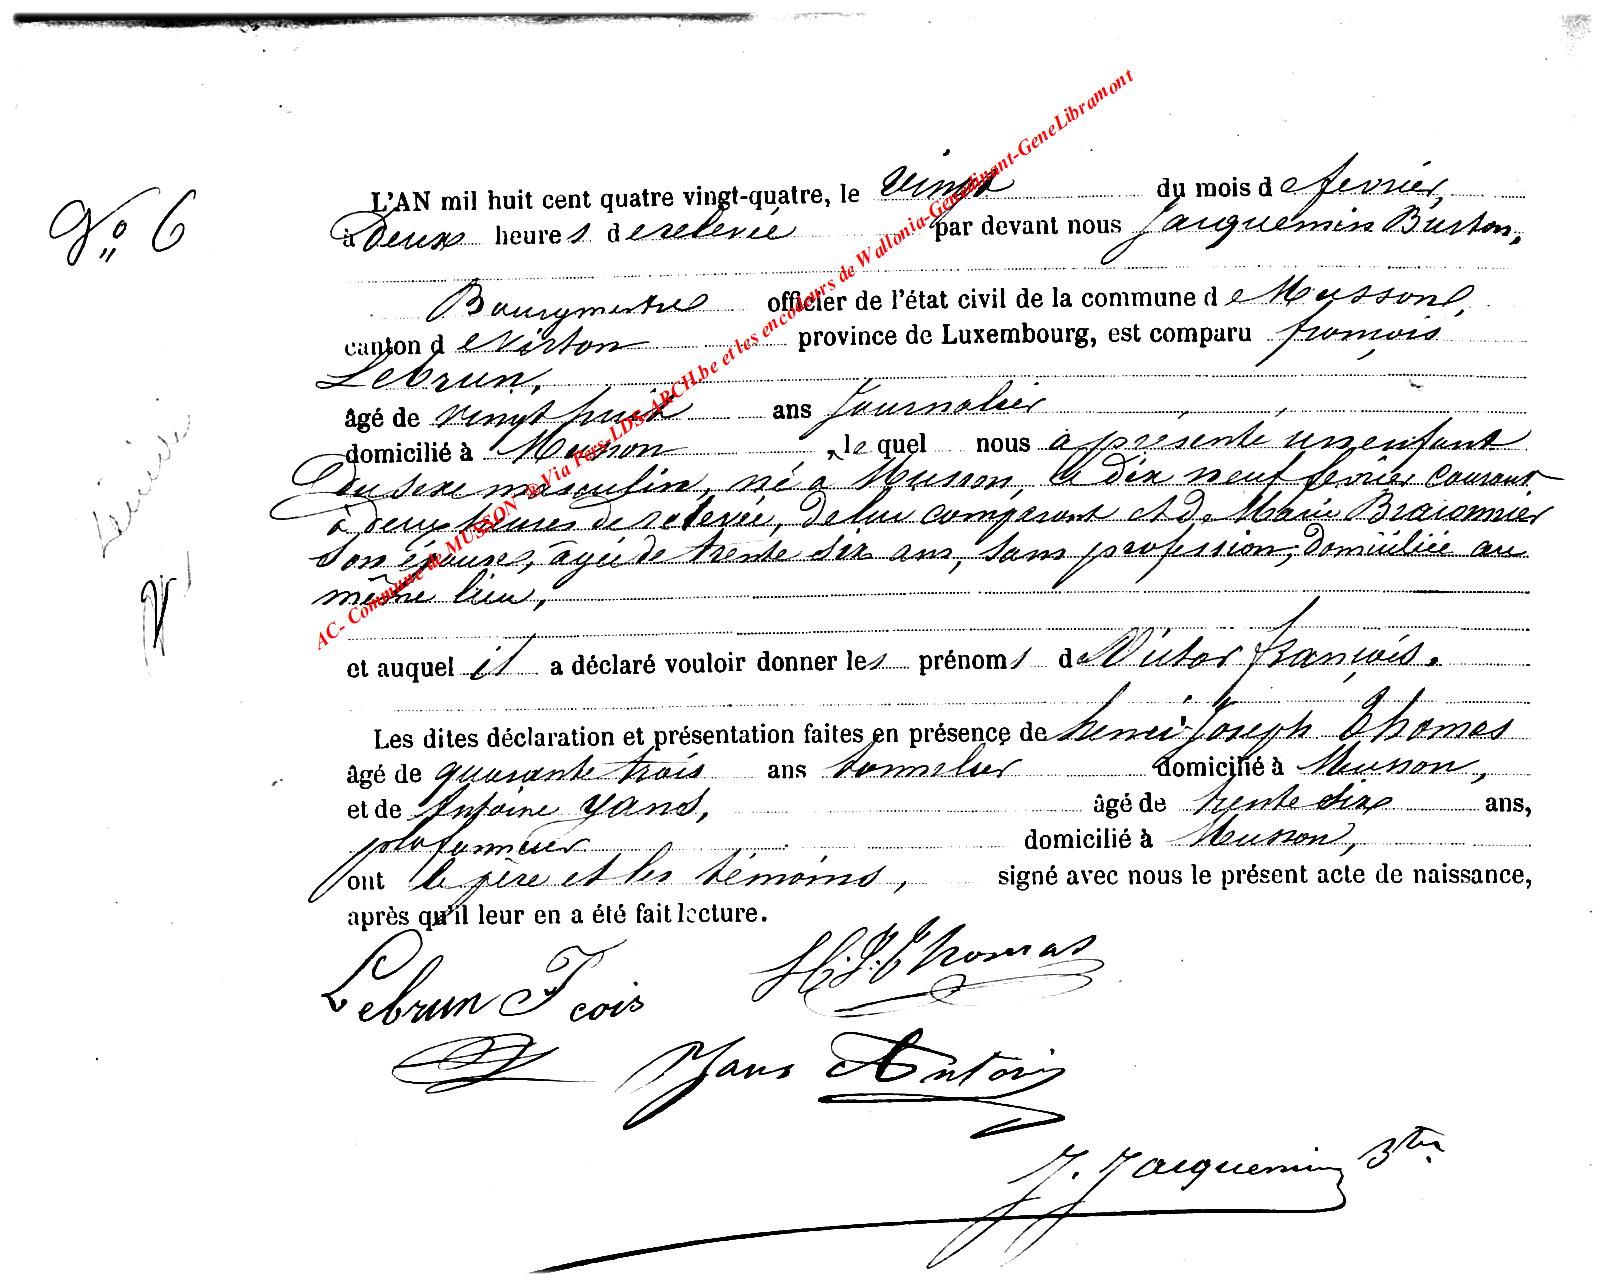 N° 6
L'AN mil huit cent quatre vingt-quatre, le vingt du mois de février,
à deux heures de relevée par devant nous Jacquemin Burton,
Bourgmestre officier de l'état civil de la commune de Musson,
canton de Virton province de Luxembourg, est comparu françois
Lebrun,
âgé de vingt huit ans Journalier
domicilié à Musson, le quel nous a présenté un enfant
du sexe masculin, né à Musson, le dix neuf février courant
à deux heures de relevée, de lui comparant et de Marie Braconnier
son épouse, âgée de trente six ans, sans profession, domiciliée au
même lieu,
et auquel il a déclaré vouloir donner les prénoms de Victor françois.
Les dites déclaration et présentation faites en présence de henri Joseph Thomas
âgé de quarante trois ans tonnelier domicilié à Musson,
et de Antoine Yans, âgé de trente six ans,
plafonneur domicilié à Musson,
ont le père et les témoins, signé avec nous le présent acte de naissance,
après qu'il leur en a été fait lecture.
Lebrun Fcois H. J. Thomas
Yans Antoin
J. Jacquemin
AC- Commune de MUSSON ® Via Pers-LDS-ARCH.be et les encodeurs de Wallonia-Genedinant-GeneLibramont